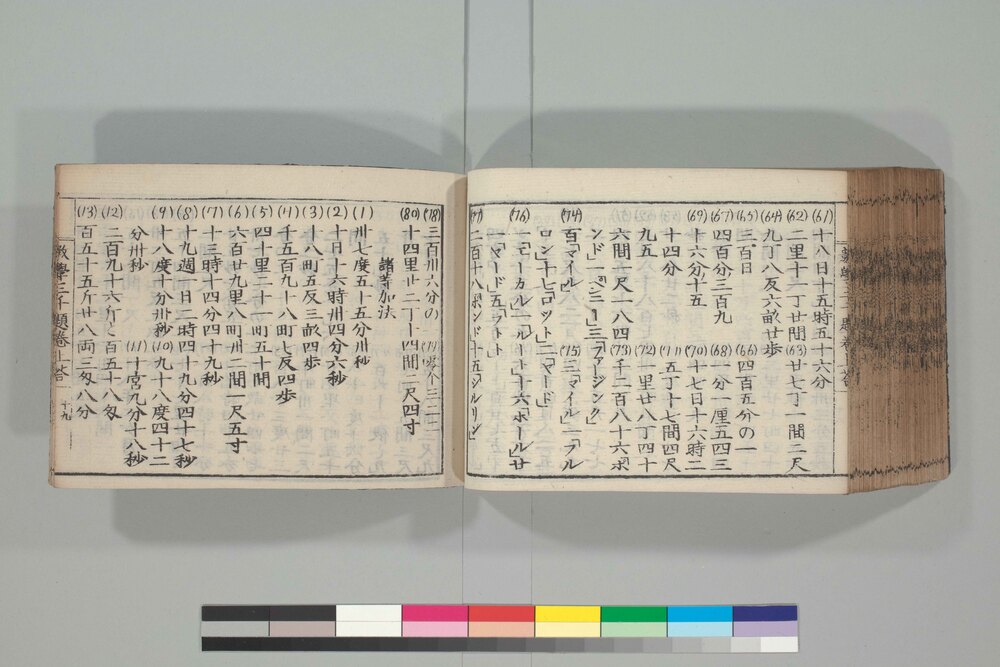 (61)十八日十五時五十六分
(62)二里十一丁廿間(63)廿七丁一間二尺
(64)九丁八反六畝廿歩
(65)三百日(66)四百五分の一
(67)四百分三百九(68)一分一厘五四三
(69)十六分十五(70)十七日十六時二
十四分(71)五丁十七間四尺
九五(72)一里廿八丁四十
六間五尺一八四(73)千二百八十六ポ
ンド」一「ペニー」三「ファージング」
(74)百「マイル」(75)三「マイル」一「フル
ロン」十七「ロット」二「ヤード」
(76)一「モーカル」一「ルート」十六「ポール」廿
一「ヤード」五「フート」
(77)二百十八「ポンド」十五「シルリング」
(78)三百卅六分の
(80)十四里廿二丁十四間二尺四寸
諸等加法
(1)卅七度五十五分卅秒
(2)十日十六時卅四分六秒
(3)十八町五反三畝四歩
(4)千五百九十八町七反四歩
(5)四十里二十一町五十間
(6)六百廿九里八町卅二間一尺五寸
(7)十三時十四分四十九秒
(8)十九週一日二時四十九分四十七秒
(9)十八度十分卅秒(10)九十八度四十二
分卅秒(11)十宮九分十八秒
(12)二百九十六斤と百五十八匁
(13)百五十五斤廿八両三匁八分
数學三千題卷上答
十九